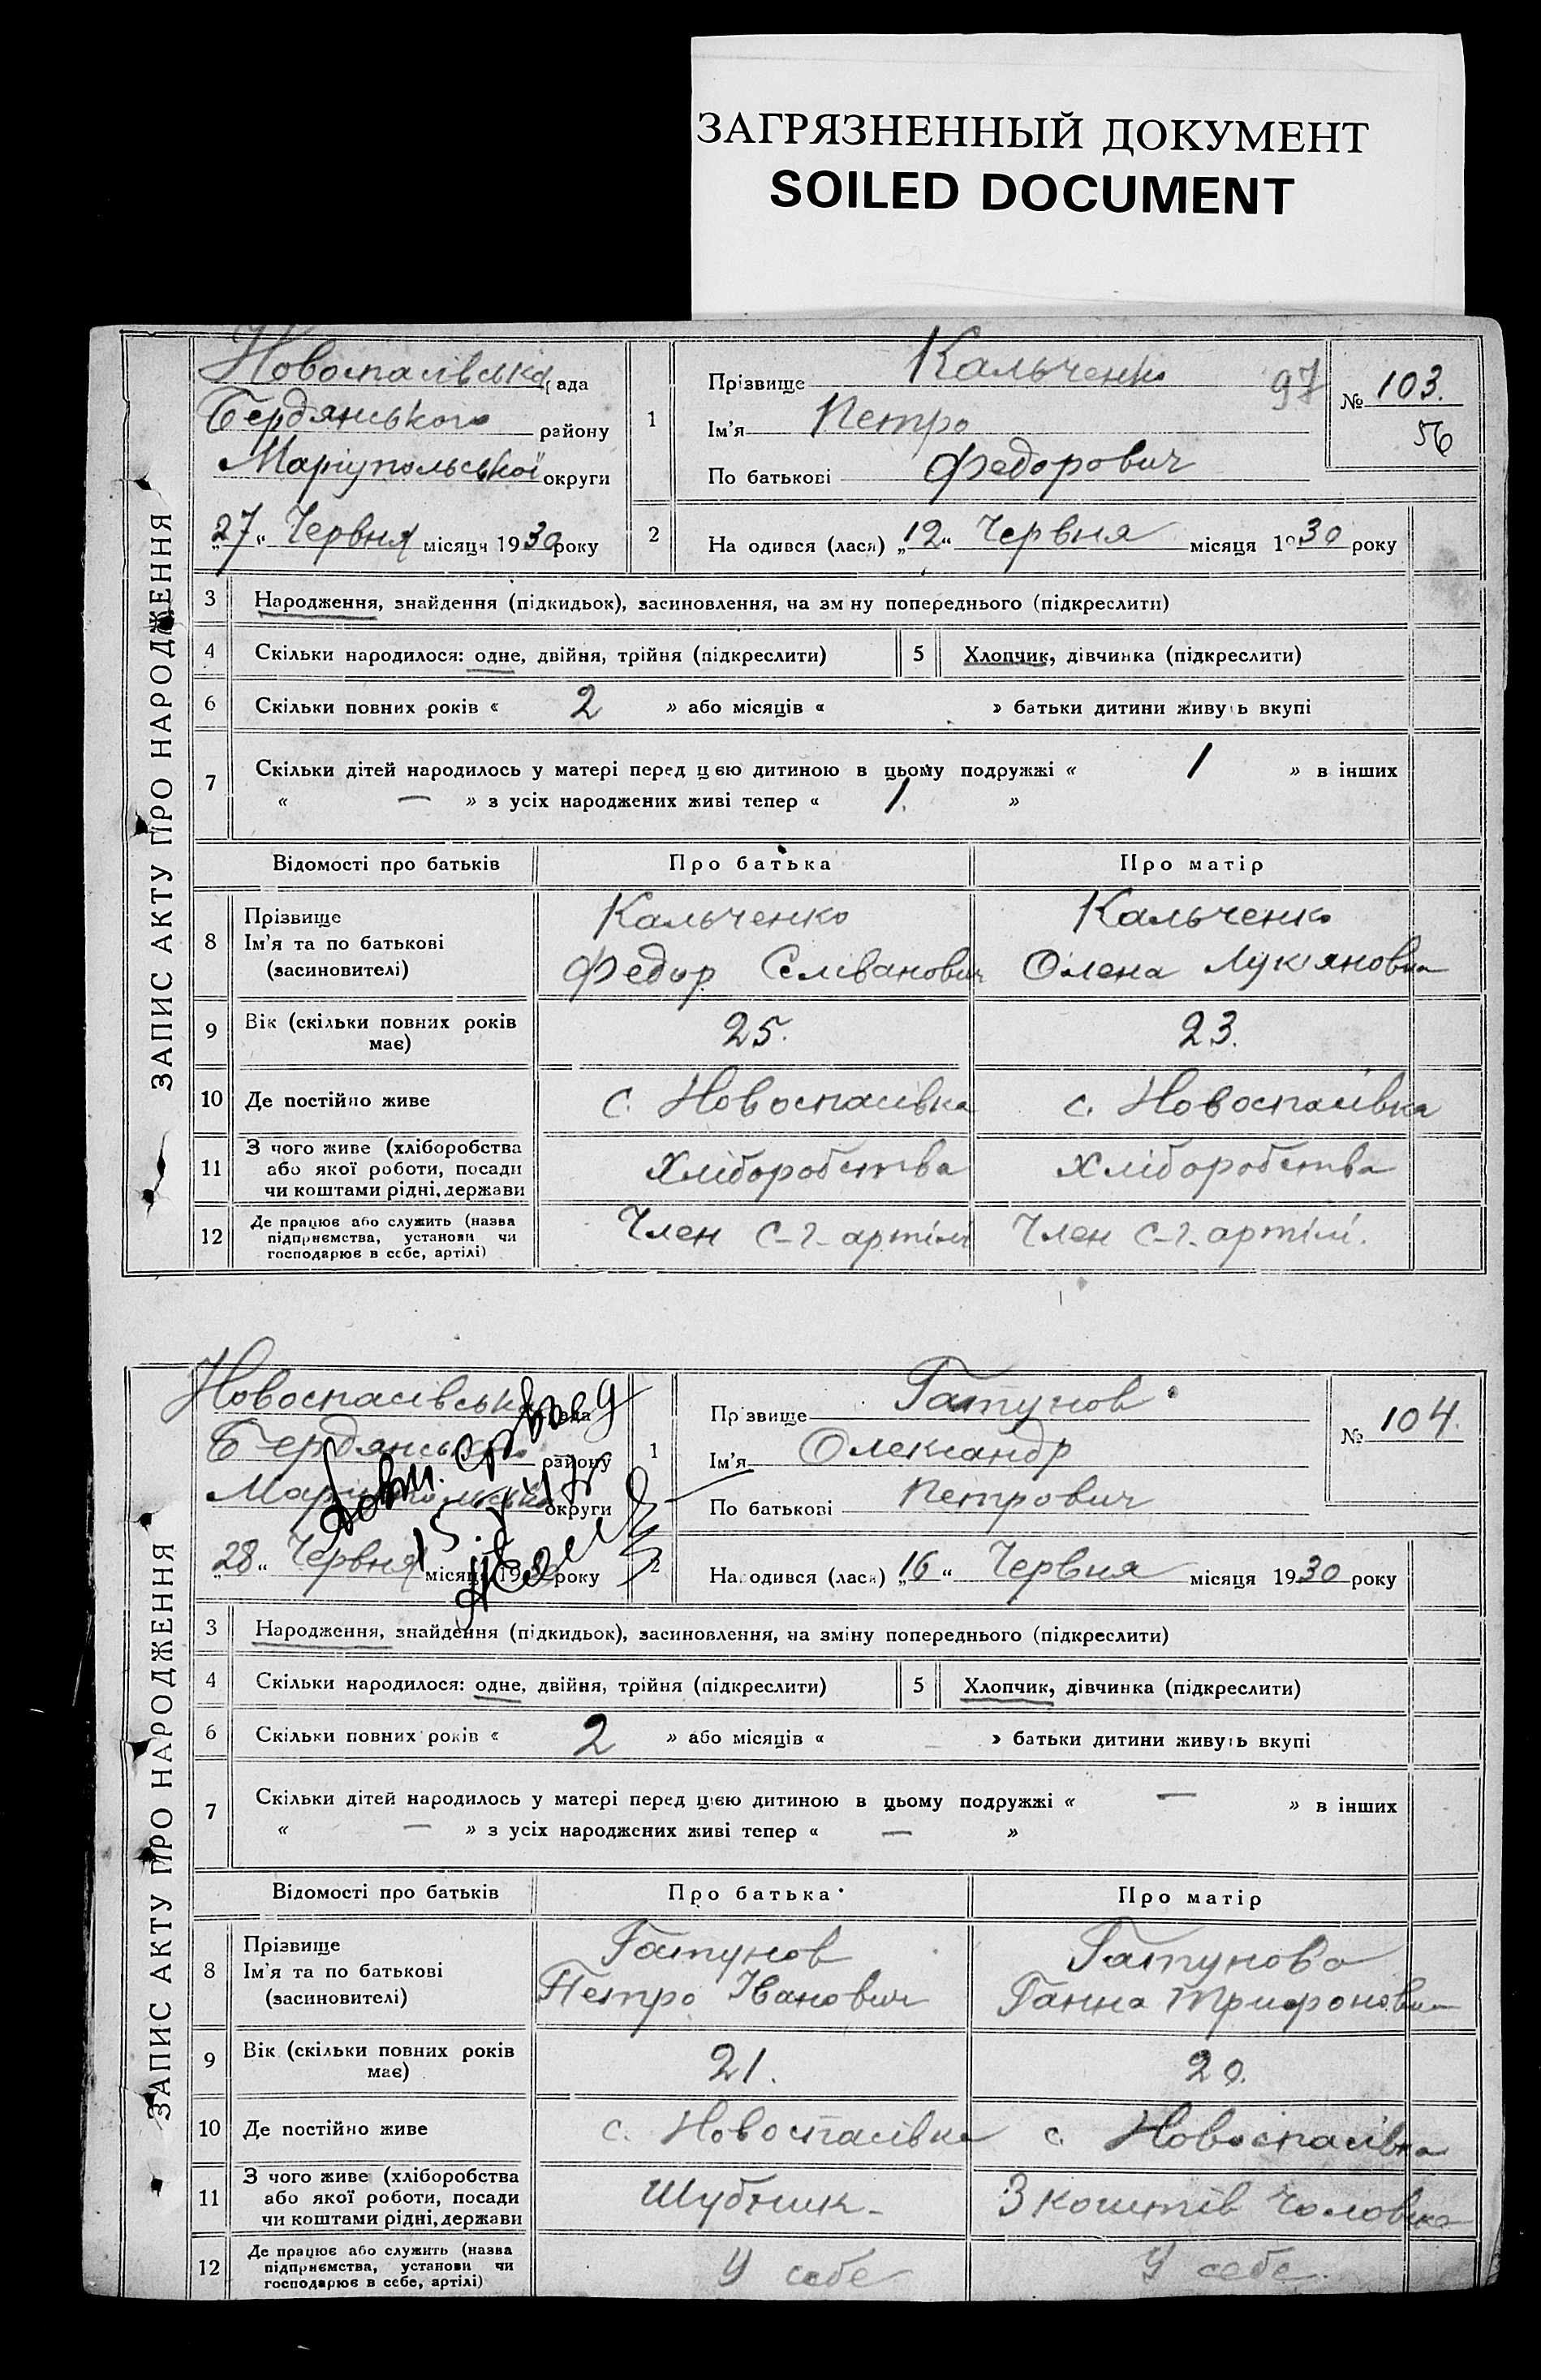 ЗАГРЯЗНЕННЫЙ ДОКУМЕНТ
SOILED DOCUMENT
ЗАПИС АКТУ ПРО НАРОДЖЕННЯ
Новоспасівська рада
Бердянського району
Маріупольської округи
„27“ Червня місяця 1930 року
1
Прізвище Кальченко 97
Ім'я Петро
По батькові Федорович
№ 103.
56
2
На одився (лася) „12“ Червня місяця 1930 року
3 Народження, знайдення (підкидьок), засиновлення, на зм ну попереднього (підкреслити)
4 Скільки народилося: одне, двійня, трійня (підкреслити) 5 Хлопчик, дівчинка (підкреслити)
6 Скільки повних років « 2 » або місяців « » батьки дитини живуть вкупі
7 Скільки дітей народилось у матері перед цією дитиною в цьому подружжі « 1 » в інших
« — » з усіх народжених живі тепер « 1. »
Відомості про батьків Про батька Про матір
8 Прізвище Кальченко Кальченко
Ім'я та по батькові
(засиновителі) Федор Селіванович Олена Лук'яновна
9 Вік (скільки повних років має) 25. 23.
10 Де постійно живе с. Новоспасівка с. Новоспасівка
11 З чого живе (хліборобства
або якої роботи, посади
чи коштами рідні, держави Хліборобства Хліборобства
12 Де працює або служить (назва
підприємства, установи чи
господарює в себе, артілі) Член с-г- артілі Член с-г. артілі.
ЗАПИС АКТУ ПРО НАРОДЖЕННЯ
Новоспасівська рада
Бердянського району
Маріупольської округи
„28“ Червня місяця 1930 року
1
Прізвище Гатунов
Ім'я Олександр
По батькові Петрович
№ 104.
2
На одився (лася) „16“ Червня місяця 1930 року
3 Народження, знайдення (підкидьок), засиновлення, на зміну попереднього (підкреслити)
4 Скільки народилося: одне, двійня, трійня (підкреслити) 5 Хлопчик, дівчинка (підкреслити)
6 Скільки повних років « 2 » або місяців « — » батьки дитини живуть вкупі
7 Скільки дітей народилось у матері перед цією дитиною в цьому подружжі « — » в інших
« — » з усіх народжених живі тепер « — »
Відомості про батьків Про батька Про матір
8 Прізвище Гатунов Гатунова
Ім'я та по батькові
(засиновителі) Петро Іванович Ганна Трифоновна
9 Вік (скільки повних років має) 21. 20.
10 Де постійно живе с. Новоспасівка с. Новоспасівка
11 З чого живе (хліборобства
або якої роботи, посади
чи коштами рідні, держави Шубник- З коштів чоловіка
12 Де працює або служить (назва
підприємства, установи чи
господарює в себе, артілі) У себе У себе.